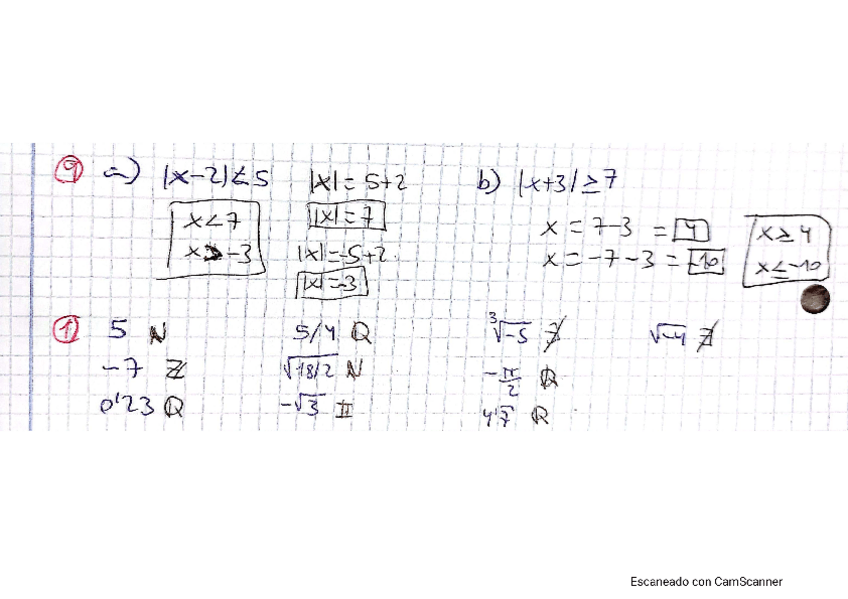 9 a) |x-2|<5 |x| = 5+2 b) |x+3| ≥ 7
x<7 |x|=7 x = 7-3 = 4 x ≥ 4
x>-3 |x|=-5+2 x = -7-3 = -10 x ≤ -10
|x|=-3
1 5 N 5/4 Q ∛-5 ∄ √-4 ∄
-7 Z √18/2 N -π/2 R
0'23 Q -√3 II 4'7 R
Escaneado con CamScanner